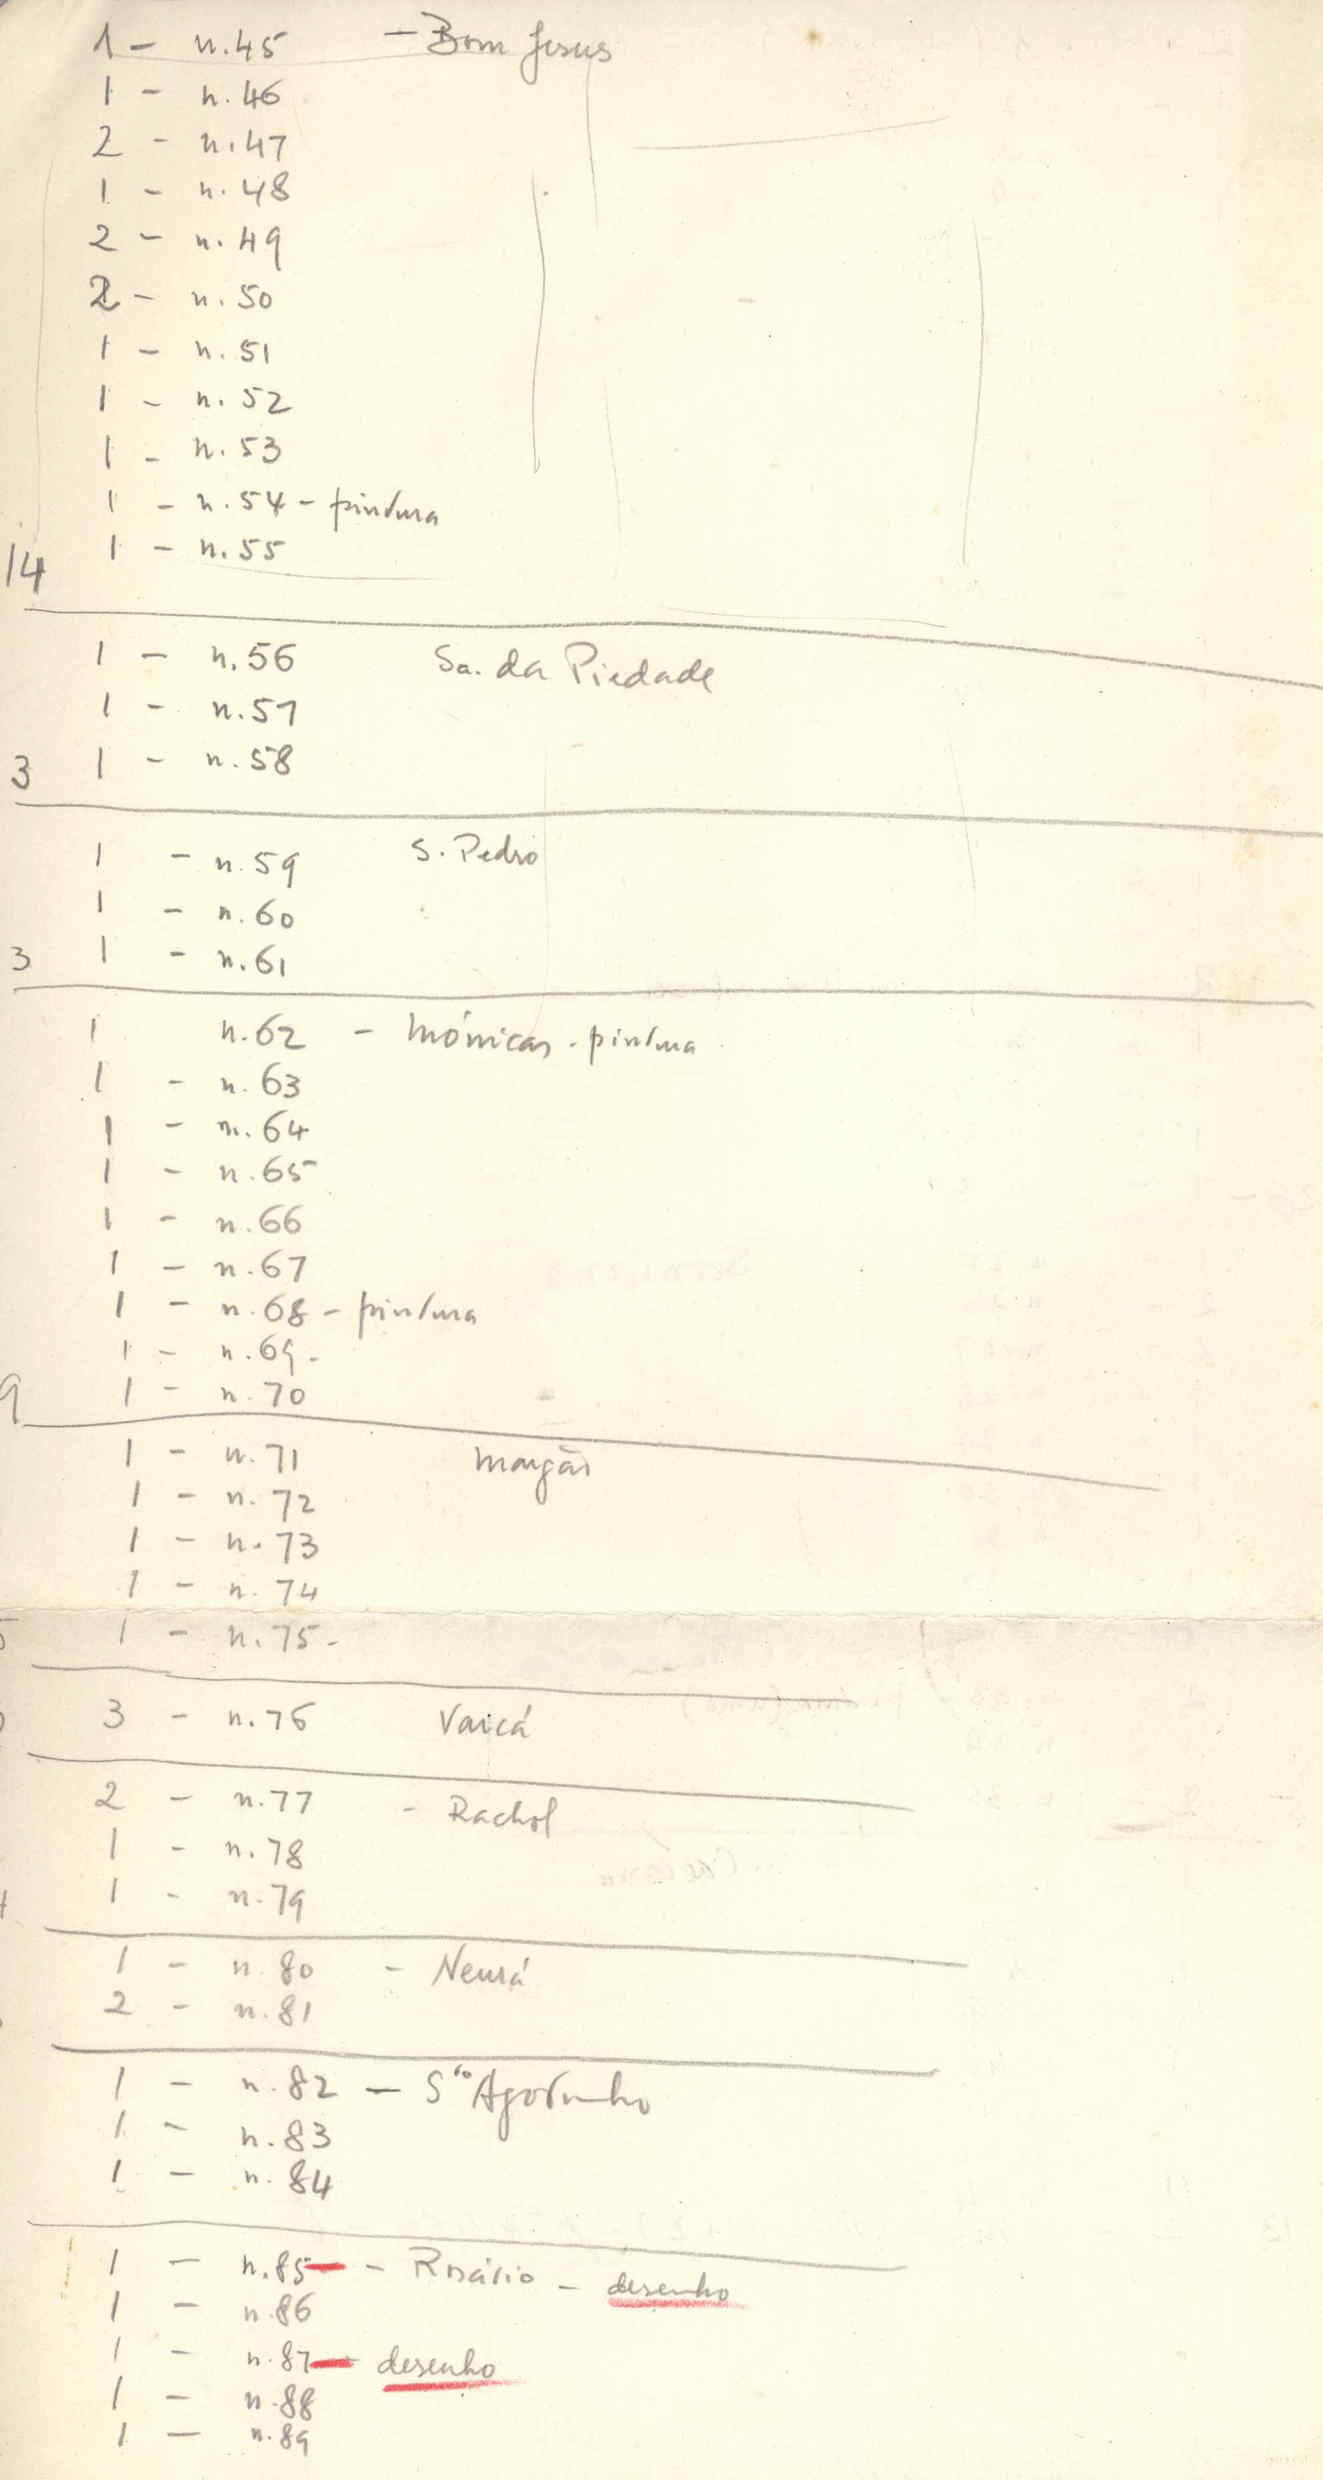 1 - n.45 - Bom Jesus
1 - n.46
2 - n.47
1 - n.48
2 - n.49
2 - n.50
1 - n.51
1 - n.52
1 - n.53
1 - n.54 - pintura
14 1 - n.55
1 - n.56 Sa. da Piedade
1 - n.57
3 1 - n.58
1 - n.59 S. Pedro
1 - n.60
3 1 - n.61
1 n.62 - Mónicas - pintura
1 - n.63
1 - n.64
1 - n.65
1 - n.66
1 - n.67
1 - n.68 - pintura
1 - n.69 -
9 1 - n.70
1 - n.71 Margão
1 - n.72
1 - n.73
1 - n.74
1 - n.75 -
3 - n.76 Vaicá
2 - n.77 - Rachol
1 - n.78
1 - n.79
1 - n.80 - Neurá
2 - n.81
1 - n.82 - Sto Agostinho
1 - n.83
1 - n.84
1 - n.85 - - Rosário - desenho
1 - n.86
1 - n.87 - desenho
1 - n.88
1 - n.89